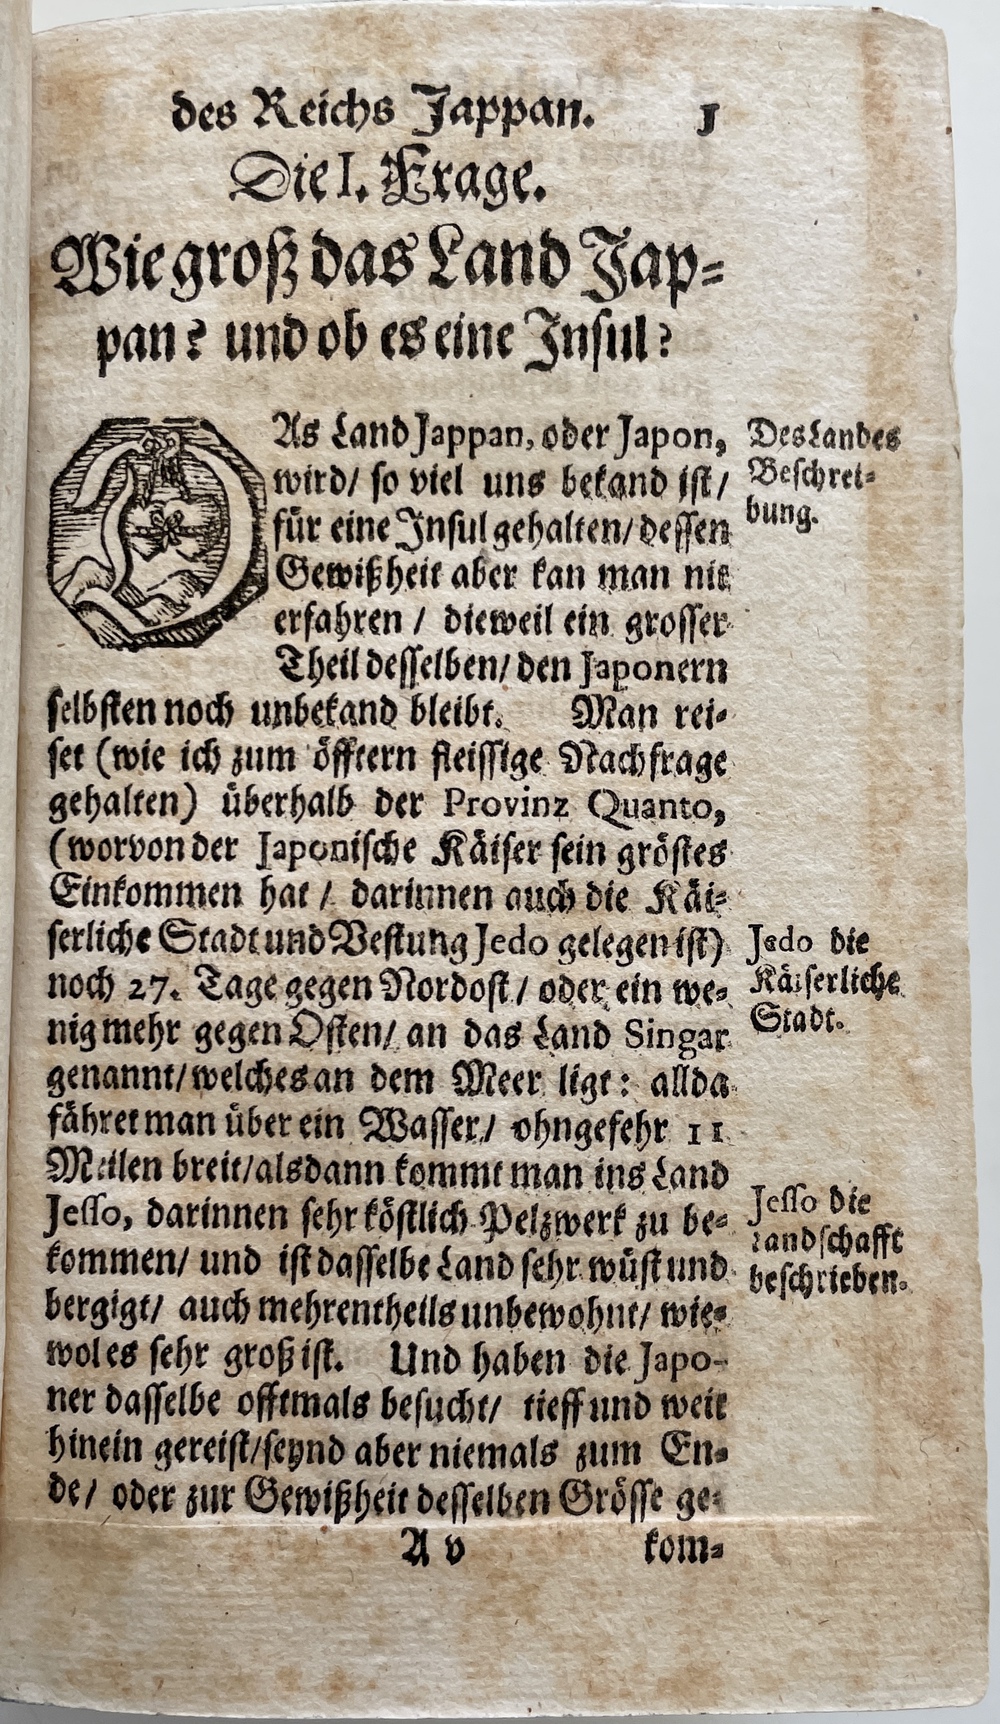 des Reichs Jappan. 1
Die I. Frage.
Wie groß das Land Jap-
pan? und ob es eine Insul?
DAs Land Jappan, oder Japon,
wird/ so viel uns bekand ist/
für eine Insul gehalten/ dessen
Gewißheit aber kan man nit
erfahren / dieweil ein grosser
Theil desselben/ den Japonern
selbsten noch unbekand bleibt. Man rei-
set (wie ich zum öfftern fleissige Nachfrage
gehalten) überhalb der Provinz Quanto,
(worvon der Japonische Käiser sein gröstes
Einkommen hat / darinnen auch die Käi-
serliche Stadt und Vestung Jedo gelegen ist)
noch 27. Tage gegen Nordost / oder ein we-
nig mehr gegen Osten/ an das Land Singar
genannt/ welches an dem Meer ligt: allda
fähret man über ein Wasser/ ohngefehr 11
Meilen breit/ alsdann kommt man ins Land
Jesso, darinnen sehr köstlich Pelzwerk zu be-
kommen/ und ist dasselbe Land sehr wüst und
bergigt/ auch mehrentheils unbewohnt/ wie-
wol es sehr groß ist. Und haben die Japo-
ner dasselbe offtmals besucht/ tieff und weit
hinein gereist/ seynd aber niemals zum En-
de/ oder zur Gewißheit desselben Grösse ge-
A v kom-
Des Landes
Beschrei-
bung.
Jedo die
Käiserliche
Stadt.
Jesso die
Landschafft
beschrieben.